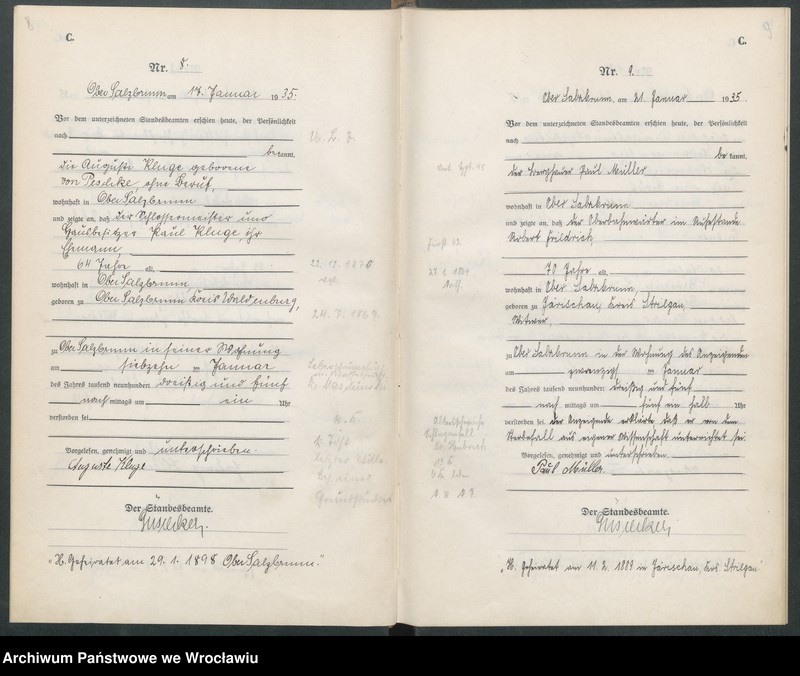 8
C.
Nr. 8.
Ober Salzbrunn am 17. Januar 1935.
Vor dem unterzeichneten Standesbeamten erschien heute, der Persönlichkeit
nach
bekannt,
die Auguste Kluge geborene
von Peschke, ohne Beruf,
wohnhaft in Ober Salzbrunn
und zeigte an, daß der Schlossermeister und
Hausbesitzer Paul Kluge, ihr
Ehmann
64 Jahre alt,
wohnhaft in Ober Salzbrunn
geboren zu Ober Salzbrunn, Kreis Waldenburg,
zu Ober Salzbrunn in seiner Wohnung
am siebzehn ten Januar
des Jahres tausend neunhundert dreißig und fünf
nach mittags um ein Uhr
verstorben sei.
Vorgelesen, genehmigt und unterschrieben.
Auguste Kluge
Der Standesbeamte.
"H. Geheiratet am 29. 1. 1898 Ober Salzbrunn."
22. 11. 1870
24. 7. 1869.
9
C.
Nr. 9.
Ober Salzbrunn, am 21. Januar 1935.
Vor dem unterzeichneten Standesbeamten erschien heute, der Persönlichkeit
nach
bekannt,
der Berghauer Paul Müller
wohnhaft in Ober Salzbrunn
und zeigte an, daß der Oberbahnwärter im Ruhestande
Robert Friedrich,
70 Jahre alt,
wohnhaft in Ober Salzbrunn,
geboren zu Järischau, Kreis Striegau,
Witwer,
zu Ober Salzbrunn in der Wohnung des Anzeigenden
am zwanzigsten Januar
des Jahres tausend neunhundert dreißig und fünf
nach mittags um fünf ein halb Uhr
verstorben sei. Der Anzeigende erklärte daß er von dem
Sterbefall aus eigener Wissenschaft unterrichtet sei.
Vorgelesen, genehmigt und unterschrieben.
Paul Müller.
Der Standesbeamte.
"H. Geheiratet am 11. 2. 1889 in Järischau, Krs. Striegau"
Archiwum Państwowe we Wrocławiu